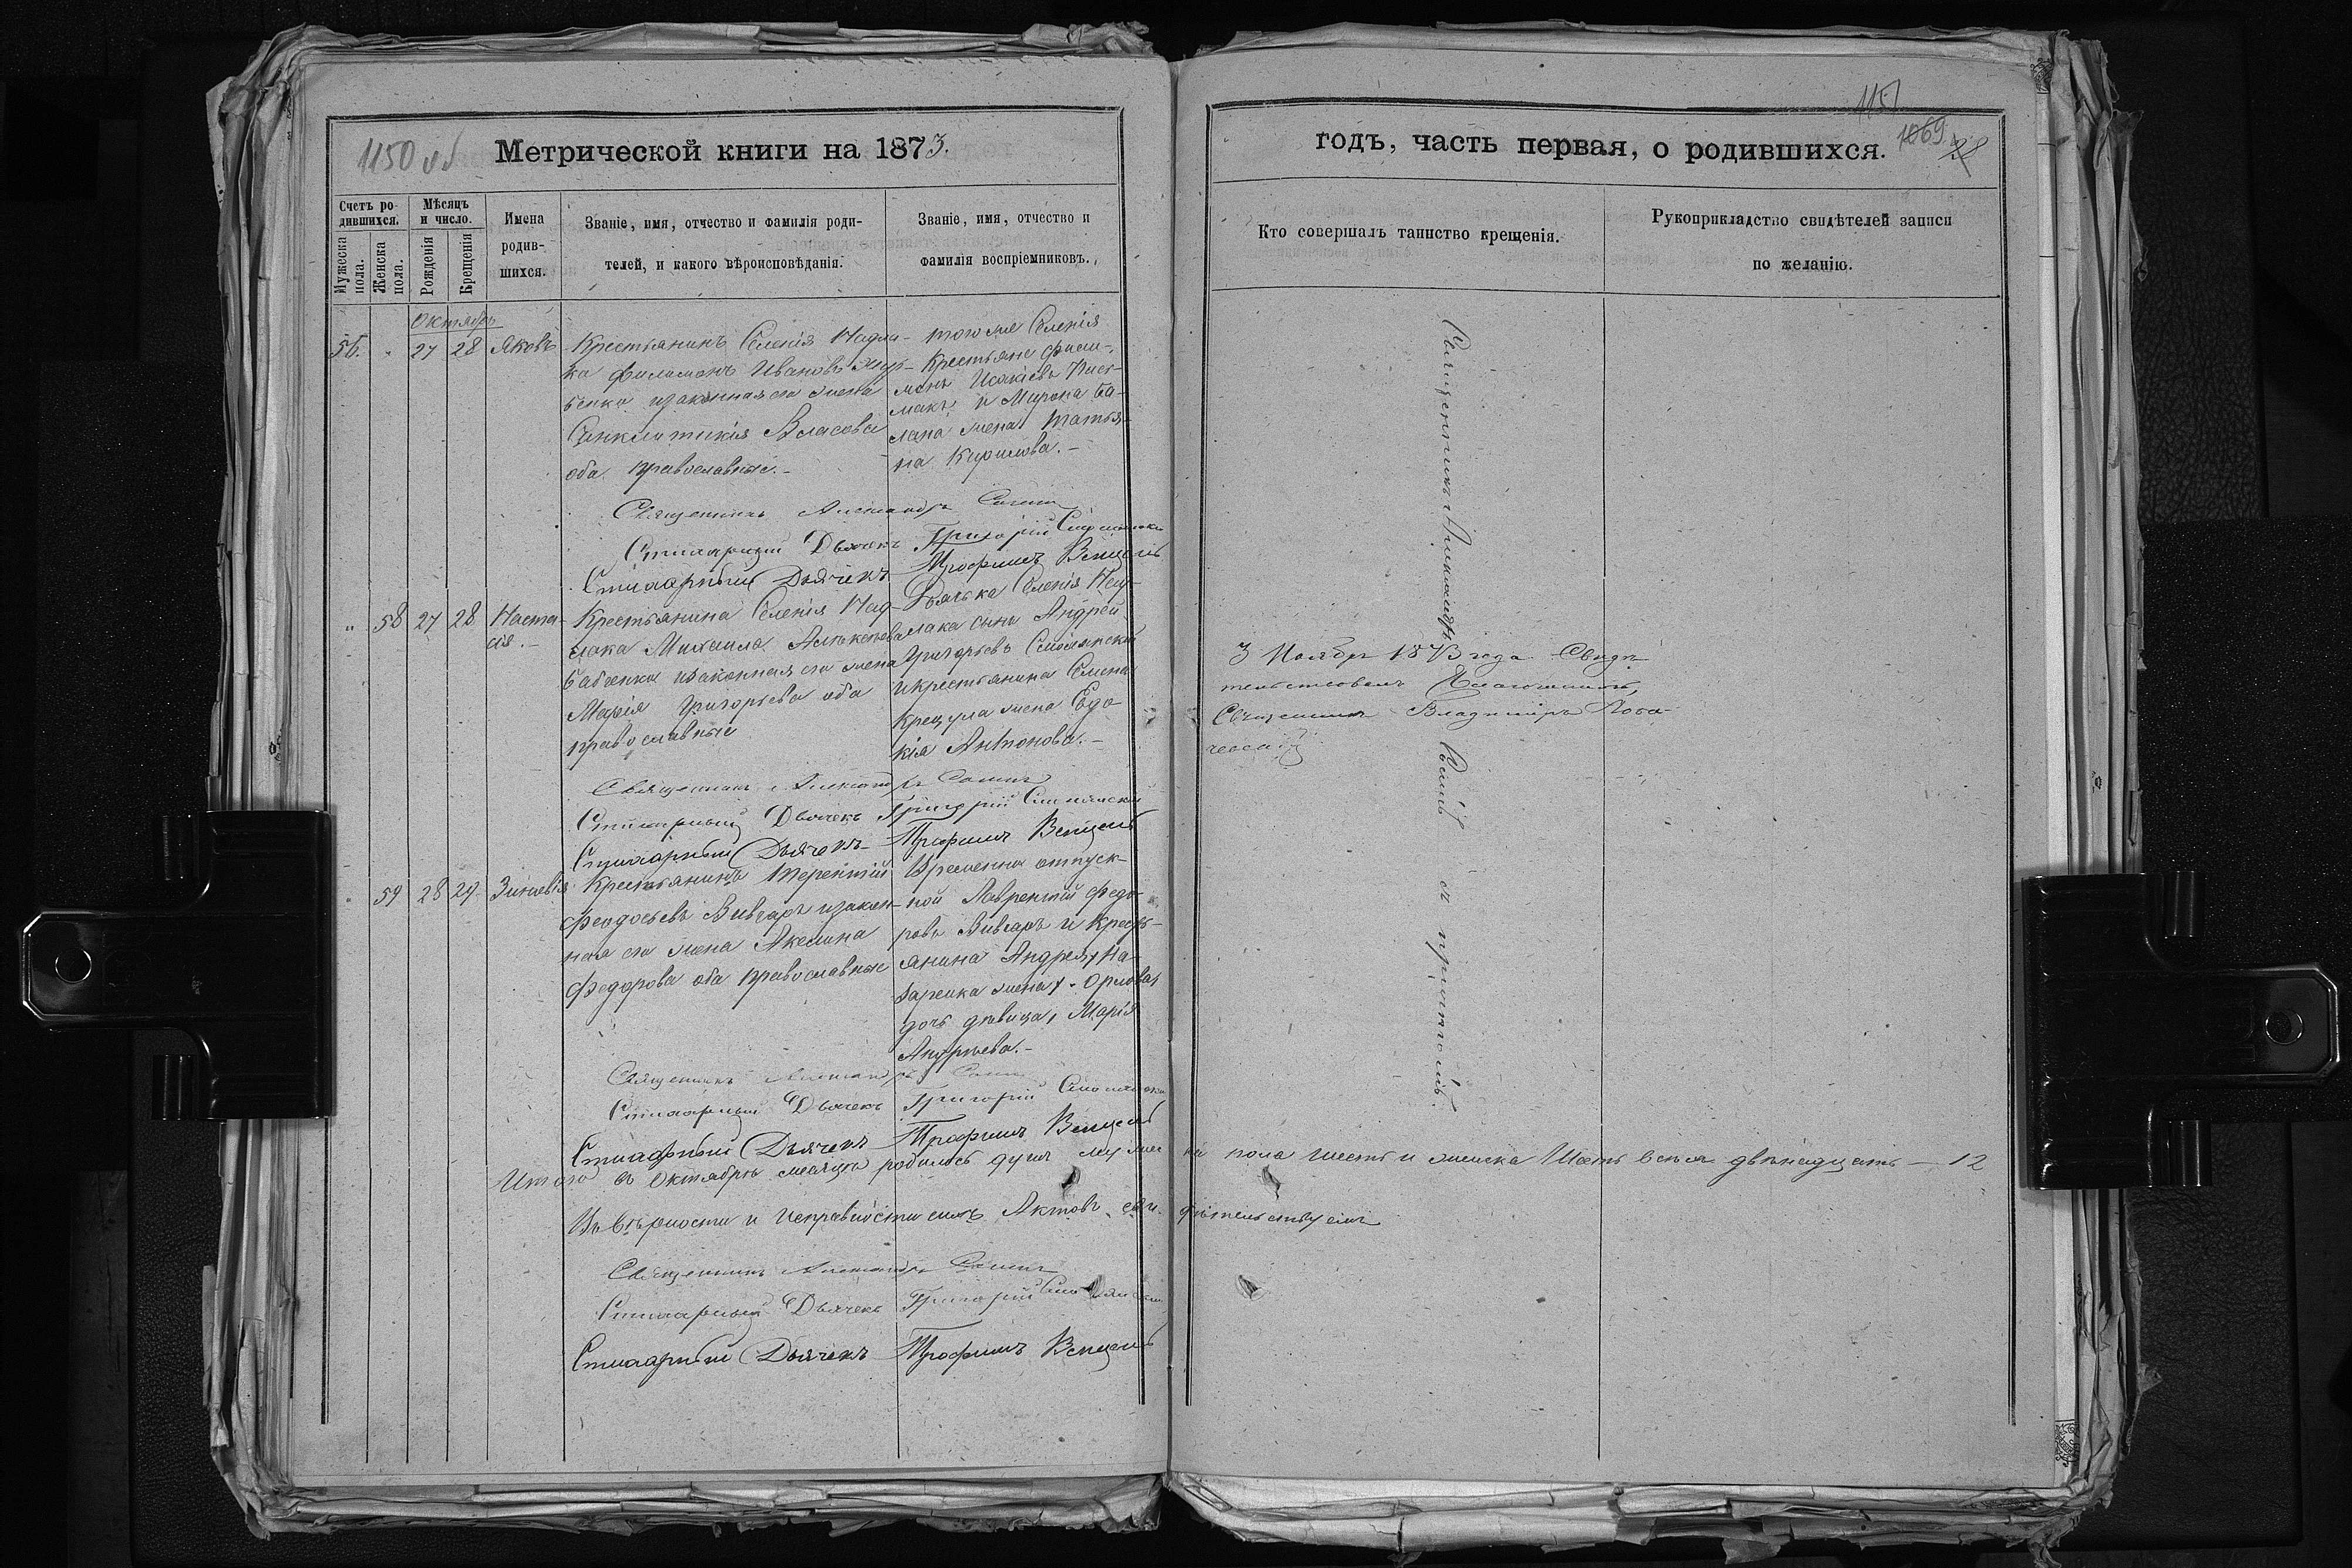 1150 об
Метрической книги на 1873.
Счетъ ро-
дившихся.
Мужеска пола.
Женска пола.
Мѣсяцъ
и число.
Рожденія
Крещенія
Имена
родив-
шихся.
Званіе, имя, отчество и фамилія роди-
телей, и какого вѣроисповѣданія.
Званіе, имя, отчество и
фамилія воспріемниковъ.
Октябрь
56. " 27 28 Яковъ
Крестьянинъ Селенія Надла-
ка Филимонъ Ивановъ
бенко изаконная его жена
Синклитикія Власова
оба православные.-
тогоже Селенія
Крестьяне Фили-
монъ Исакіевъ
и Мирона Ба-
лана жена Татья-
на Кирилова.-
Священникъ Александръ
Стихарный Дьячекъ Григорій Смолянскій
Стихарный Дьячекъ Трофимъ Венцель
" 58 27 28 Настa-
сія.-
Крестьянина Селенія Над-
лака Михаила Алексѣева
Бабченка изаконная его жена
Марія Григорьева оба
православные
Дьячка Селенія Над-
лака сынъ Андрей
Григорьевъ Смолянскій
икрестьянина Семена
Крецула жена Евдо-
кія Антонова.-
Священникъ Александръ
Стихарный Дьячекъ Григорій Смолянскій
Стихарный Дьячекъ Трофимъ Венцель
" 59 28 29 Зиновія
Крестьянинъ Терентій
Феодосьевъ Вивчаръ изакон-
ная его жена Акелина
Федорова оба православные
Временно отпуск-
ной Лаврентій Федо-
ровъ Вивчаръ и Крестъ-
янина Андрея На-
заренка жена
дочь дѣвица, Марія
Андреева.-
Священникъ Александръ
Стихарный Дьячекъ Григорій Смолянскій
Стихарный Дьячекъ Трофимъ Венцель
Итого въ Октябрѣ месяцѣ родилось душъ мужес
ка пола шесть и женска Шесть всѣхъ двѣнадцать — 12
Въ вѣрности и исправности сихъ Актовъ сви-
дѣтельствуемъ
Священникъ Александръ
Стихарный Дьячекъ Григорій Смолянскій
Стихарный Дьячекъ Трофимъ Венцель
1151
1069
28
годъ, часть первая, о родившихся.
Кто совершалъ таинство крещенія.
Рукоприкладство свидѣтелей записи
по желанію.
Священникъ Александръ съ причтомъ.
3 Ноября 1873 года Свидѣ
тельствовалъ Благочинный,
Священникъ Владиміръ Лоба-
чевскій